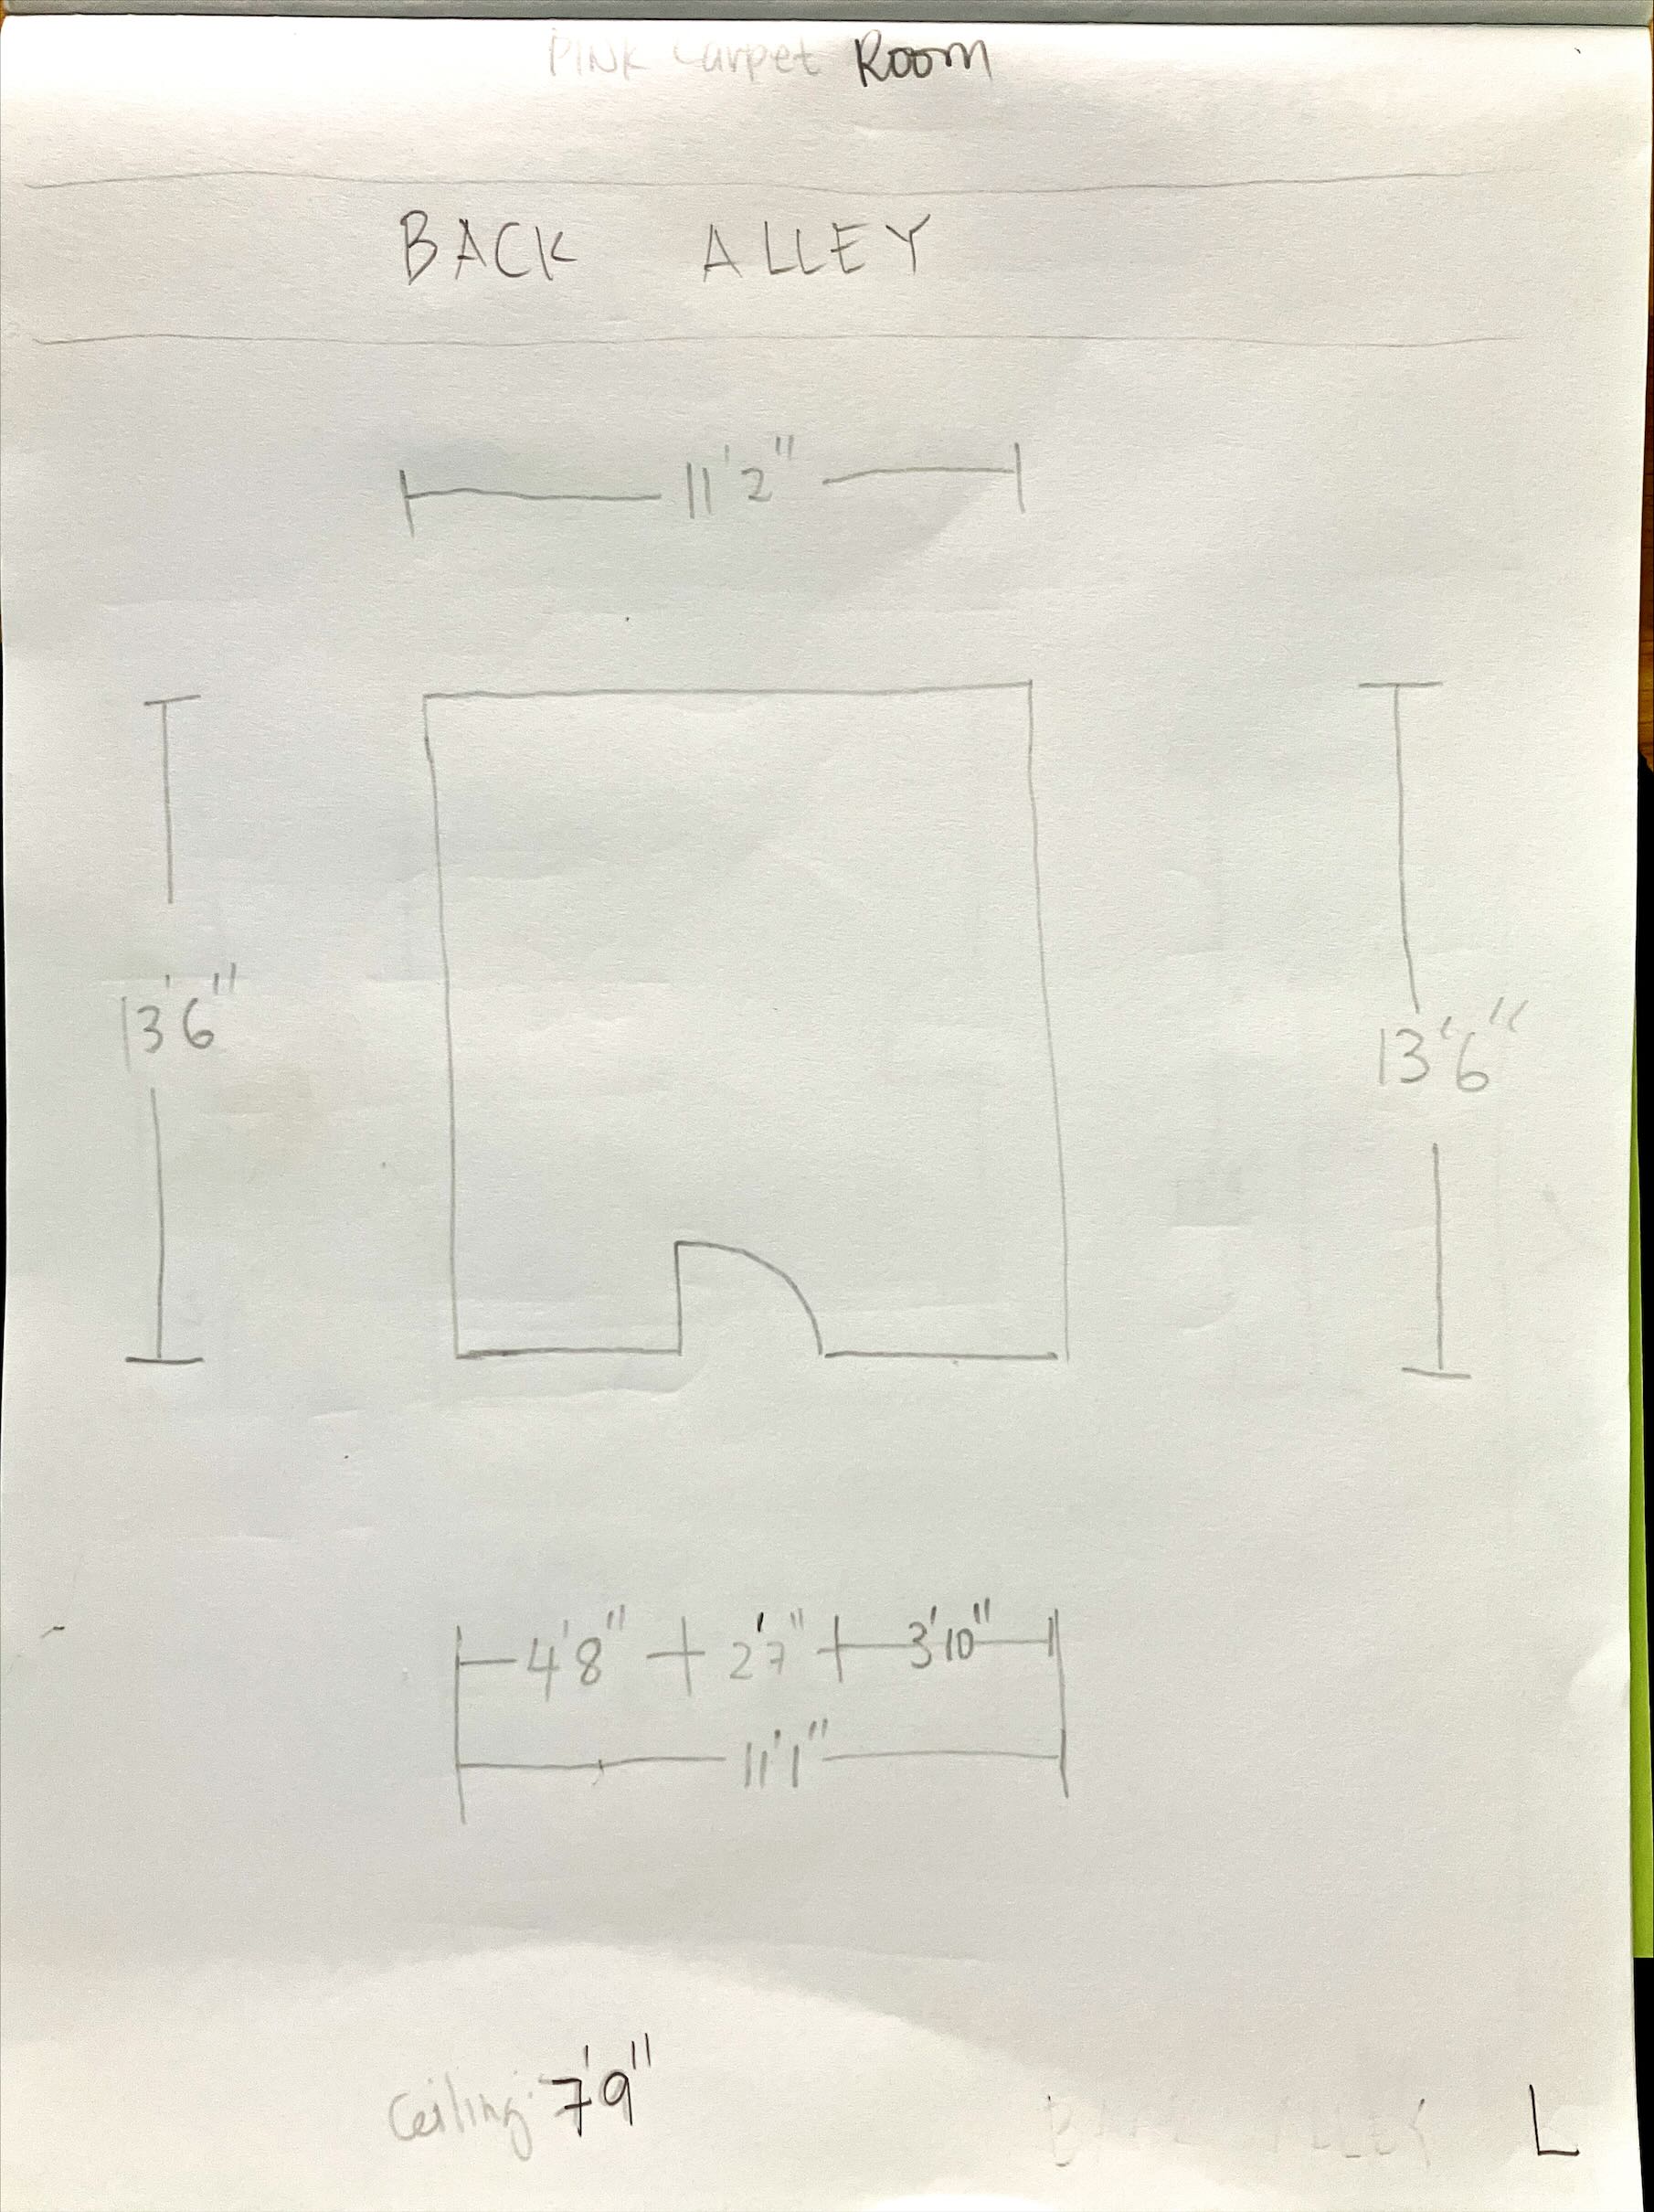 PINK Carpet Room
BACK ALLEY
11'2"
13'6"
13'6"
4'8" 2'7" 3'10"
11'1"
Ceiling: 7'9"
L